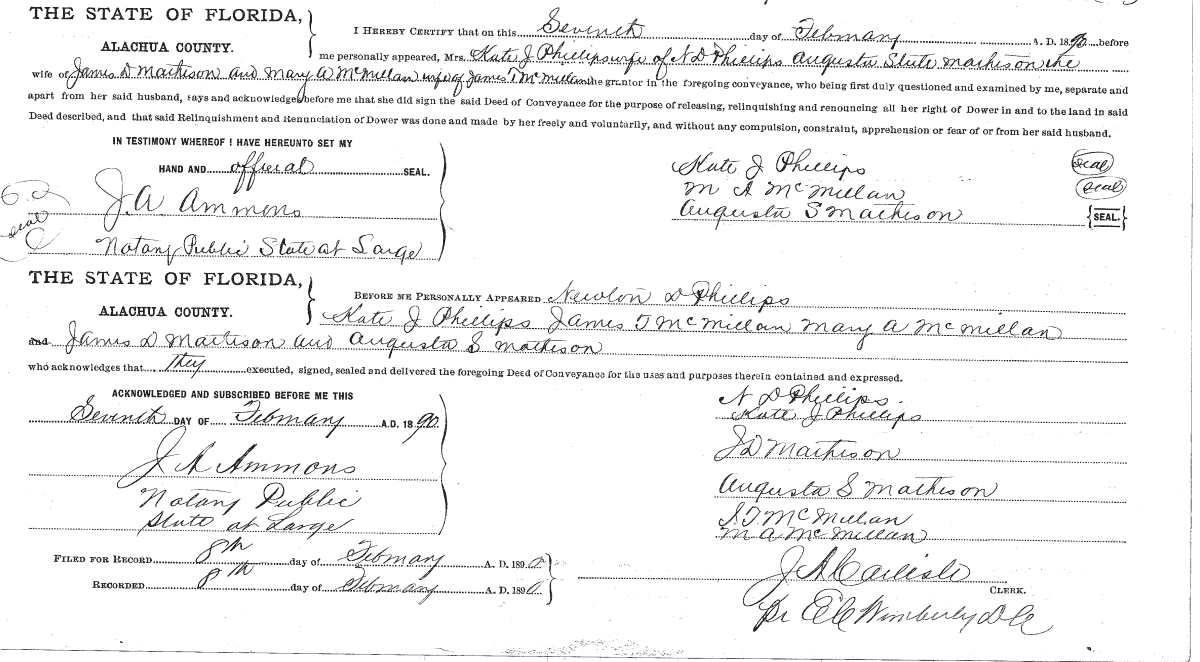 THE STATE OF FLORIDA,
ALACHUA COUNTY.
I HEREBY CERTIFY that on this Seventh day of February A. D. 1890 before
me personally appeared, Mrs. Kate J Phillips wife of N D Phillips Augusta S Mathison the
wife of James D Mathison and Mary A McMillan wife of James T McMillan the grantor in the foregoing conveyance, who being first duly questioned and examined by me, separate and
apart from her said husband, says and acknowledges before me that she did sign the said Deed of Conveyance for the purpose of releasing, relinquishing and renouncing all her right of Dower in and to the land in said
Deed described, and that said Relinquishment and Renunciation of Dower was done and made by her freely and voluntarily, and without any compulsion, constraint, apprehension or fear of or from her said husband.
IN TESTIMONY WHEREOF I HAVE HEREUNTO SET MY
HAND AND official SEAL.
J. A Ammons
seal
Notary Public State at Large
Kate J Phillips seal
M A McMillan seal
Augusta S Mathison {SEAL.}
THE STATE OF FLORIDA,
ALACHUA COUNTY.
BEFORE ME PERSONALLY APPEARED Newton D Phillips
Kate J Phillips James T McMillan Mary A McMillan
and James D Mathison and Augusta S Mathison
who acknowledges that they executed, signed, sealed and delivered the foregoing Deed of Conveyance for the uses and purposes therein contained and expressed.
ACKNOWLEDGED AND SUBSCRIBED BEFORE ME THIS
Seventh DAY OF February A.D. 1890
J A Ammons
Notary Public
State at Large
N D Phillips.
Kate J Phillips
J D Mathison
Augusta S Mathison
J T McMillan
M A McMillan
FILED FOR RECORD 8th day of February A. D. 1890
RECORDED 8th day of February A. D. 1890
J A Carlisle
CLERK.
Pr E C Wimberly D C